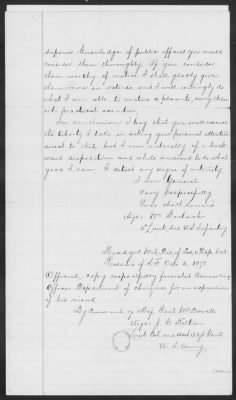 superior knowledge of public affairs you would
consider them thoroughly. If you consider
them worthy of notice I shall gladly give
them more in extenso and I will willingly do
what I am able to mature a plan to carry them
into practical execution.
In conclusion I beg that you will excuse
the liberty I take in asking your personal attention
to this, but I am naturally of a back
ward disposition and while anxious to do what
good I can, I detest any degree of notoriety
I am General
Very Respectfully
Your obedt Servant
Wm
2d Lieut, U.S. Infantry
Head qrs Mil. Div. of Pac. & Dept. Cal.
Presidio of S.F. Oct. 2, 1879
Official copy respectfully furnished Commanding
Officer Department of Arizona for an expression
of his views.
By Command of Maj. Genl McDowell
J. C. Kelton
Lieut. Col. and Asst. Adjt. Genl.
U. S. Army